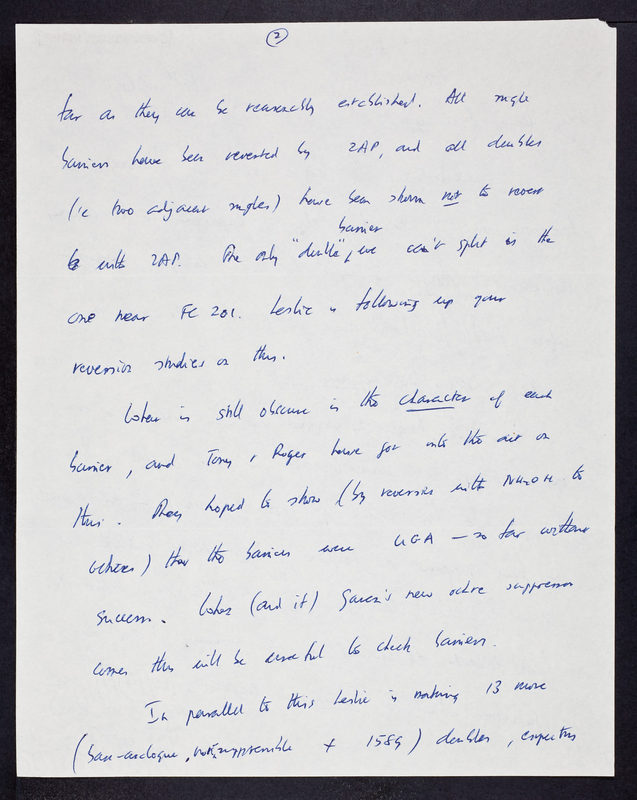 2
far as they can be reasonably established. All single
barriers have been reverted by 2AP, and all doubles
(ie two adjacent singles) have been shown not to revert
with 2AP. The only "double" barrier we can't split is the
one near FC 201. Leslie is following up your
reversion studies on this.
What is still obscure is the character of each
barrier, and Tony + Roger have got into the act on
this. They hoped to show (by reversion with NH2OH to
ochres) that the barriers were UGA — so far without
success. When (and if) new ochre suppressor
comes this will be useful to check barriers.
In parallel to this Leslie is making 13 more
(base-analogue, non-suppressible + 1589) doubles,